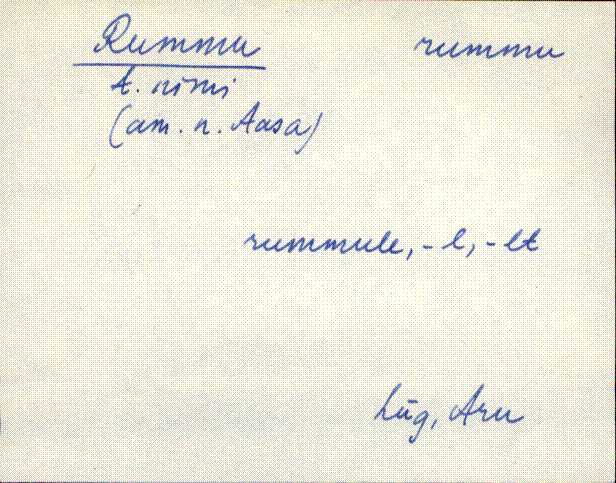 Rummu rummu
t. nimi
(am. n. Aasa)
rummule, -l, -lt
Lüg, Aru